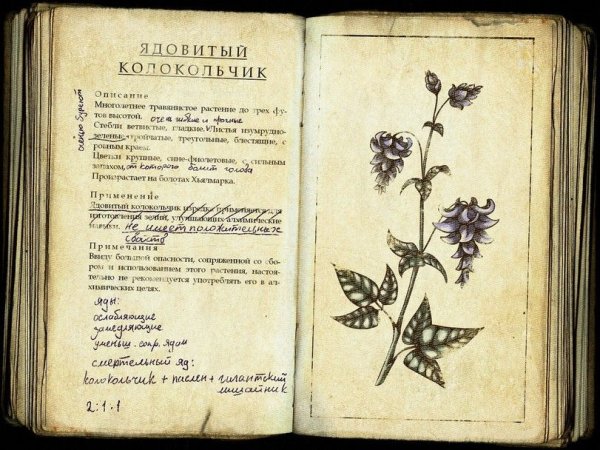 ЯДОВИТЫЙ
КОЛОКОЛЬЧИК
Описание
Многолетнее травянистое растение до трех фу-
тов высотой. очень гибкие и прочные
Стебли ветвистые, гладкие. Листья изумрудно-
зеленые, тройчатые, треугольные, блестящие, с
ровным краем.
Цветки крупные, сине-фиолетовые, с сильным
запахом, от которого болит голова
Прорастает на болотах Хьялмарка.
Применение
Ядовитый колокольчик изредка применяется для
изготовления зелий, улучшающих алхимические
навыки. Не имеет положительных
свойств
Примечания
Ввиду большой опасности, сопряженной со сбо-
ром и использованием этого растения, настоя-
тельно не рекомендуется употреблять его в ал-
химических целях.
яды:
ослабляющие
замедляющие
уменьш. сопр. ядам
смертельный яд:
колокольчик + паслен + гигантский
лишайник
2:1.1